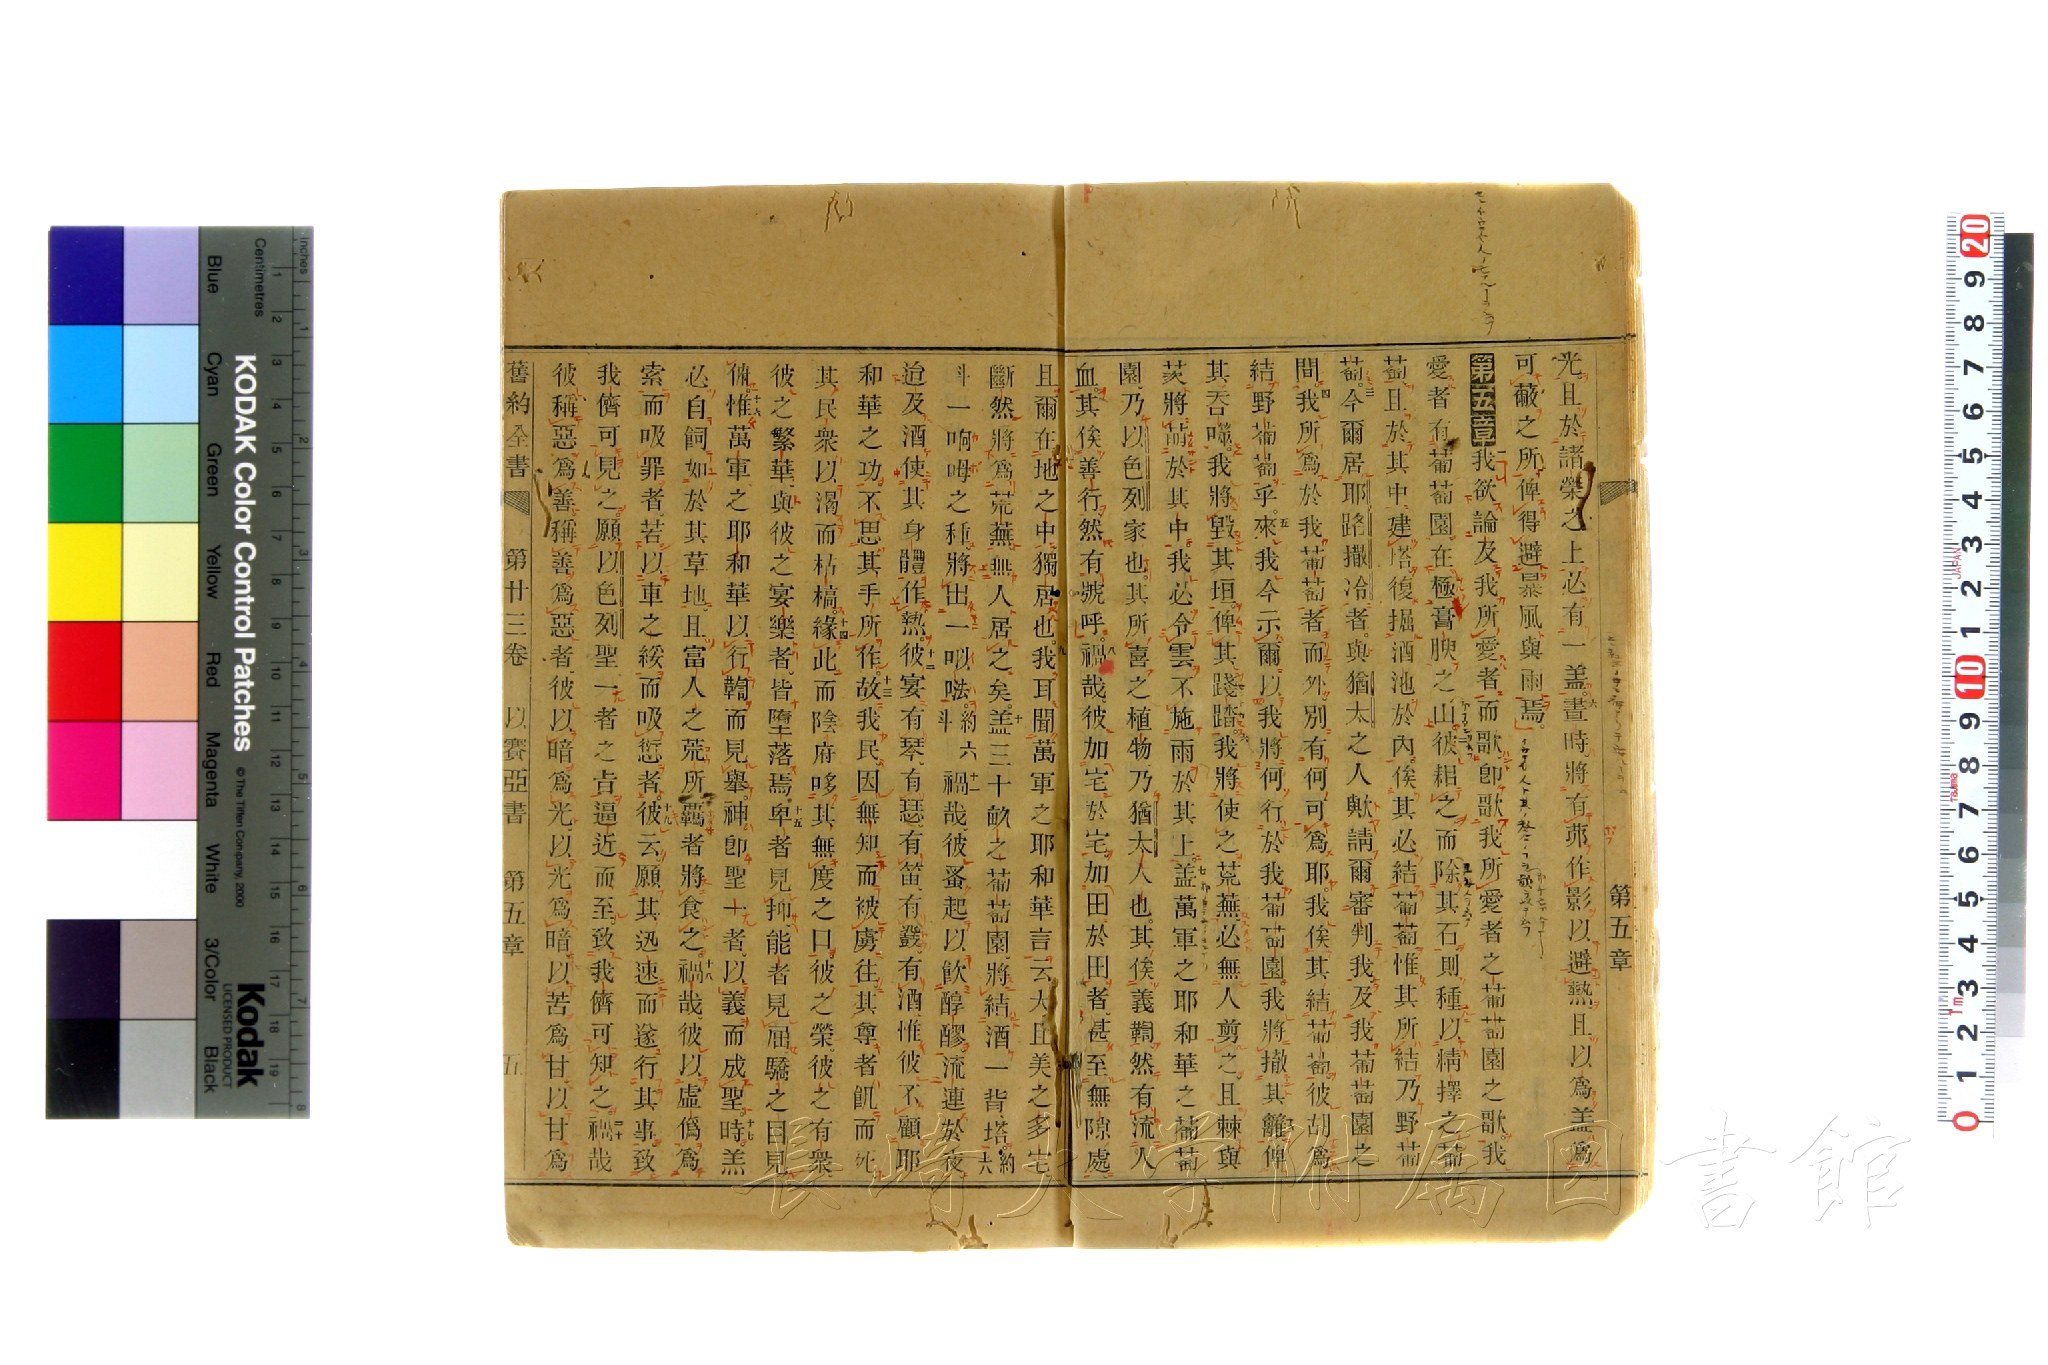 光且於諸榮之上必有一盖晝時將有茆作影以避熱且以為盖為
可蔽之所俾得避暴風與雨焉
第五章我欲論及我所愛者而歌卽歌我所愛者之葡萄園之歌我
愛者有葡萄園在極膏腴之山彼耡之而除其石則種以精擇之葡
萄且於其中建塔復掘酒池於內俟其必結葡萄惟其所結乃野葡
萄三今爾居耶路撒冷者與猶太之人歟請爾審判我及我葡萄園之
間四我所為於我葡萄者而外別有何可為耶我俟其結葡萄彼胡為
結野葡萄乎五來我今示爾以我將何行於我葡萄園我將撤其籬俾
其吞囓我將毀其垣俾其踐踏六我將使之荒蕪必無人剪之且棘與
茨將萌於其中我必令雲不施雨於其上七盖萬軍之耶和華之葡萄
園乃以色列家也其所喜之植物乃猶太人也其俟義鞫然有流人
血其俟善行然有號呼八禍哉彼加宅於宅加田於田者甚至無隙處
且爾在地之中獨居也九我耳聞萬軍之耶和華言云大且美之多宅
斷然將為荒蕪無人居之矣十盖三十畝之葡萄園將結酒一背塔約六
斗一㖃㖼之種將出一㕽𠵽約六斗十一禍哉彼蚤起以飲醇醪流連於夜
迨及酒使其身體作熱十二彼宴有琴有瑟有笛有鼗有酒惟彼不顧耶
和華之功不思其手所作十三故我民因無知而被虜往其尊者飢而死
其民衆以渴而枯槁十四緣此而陰府哆其無度之口彼之榮彼之有衆
彼之繁華與彼之宴樂者皆墮落焉十五卑者見抑能者見屈驕之目見
俯十六惟萬軍之耶和華以行鞫而見舉神卽聖一者以義而成聖十七時羔
必自飼如於其草地且富人之荒所羇者將食之十八禍哉彼以虛僞為
索而吸罪者若以車之綏而吸愆者十九彼云願其迅速而遂行其事致
我儕可見之願以色列聖一者之㫖逼近而至致我儕可知之二十禍哉
彼稱惡為善稱善為惡者彼以暗為光以光為暗以苦為甘以甘為
舊約全書 第廿三卷 以賽亞書 第五章 五
第五章
長崎大学附属図書館
KODAK Color Control Patches
© The Tiffen Company, 2000
Kodak
LICENSED PRODUCT
Inches
Centimetres
Blue Cyan Green Yellow Red Magenta White 3/Color Black
JAPAN